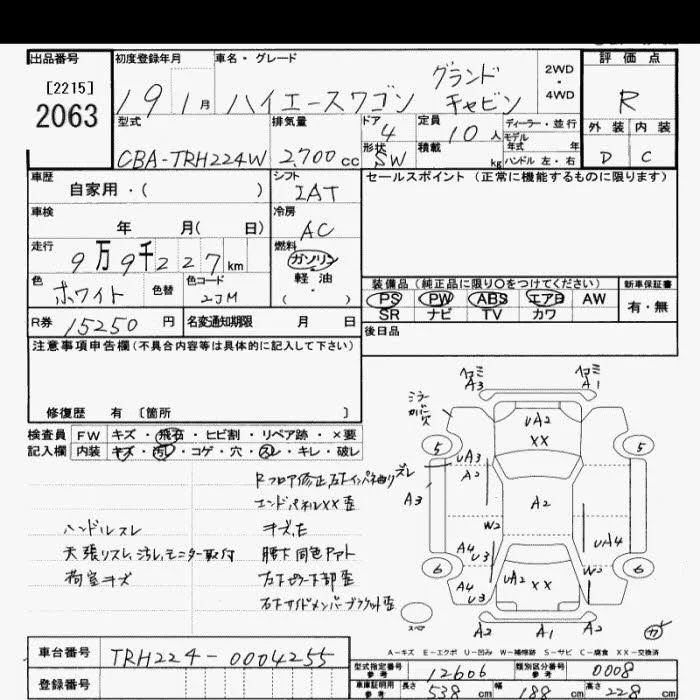 出品番号
[2215]
2063
初度登録年月
19 1月
車名・グレード
ハイエースワゴン グランドキャビン
2WD
・
4WD
評価点
R
外装 内装
D C
型式
CBA-TRH224W
排気量
2,700cc
ドア
4
形状
SW
定員
10人
積載
kg
ディーラー・並行
モデル
年式 年
ハンドル 左・右
車歴
自家用・( )
シフト
IAT
セールスポイント (正常に機能するものに限ります)
車検
年 月( 日)
冷房
AC
走行
9万9千227km
燃料
ガソリン
軽油
( ・ )
色
ホワイト
色替
色コード
2JM
装備品 (純正品に限り○をつけてください)
PS PW ABS エアB AW
SR ナビ TV カワ
新車保証書
有・無
R券 15250円
名変通知期限 月 日
後日品
注意事項申告欄(不具合内容等は具体的に記入して下さい)
修復歴 有 〔箇所 〕
検査員
記入欄
FW キズ・飛石・ヒビ割・リペア跡・×要
内装 キズ・汚レ・コゲ・穴・スレ・キレ・破レ
Rフロア修正 右下インパネ廻りズレ
エンドパネルXX歪
ハンドルスレ
キズ、E
天張リスレ、汚レ、モニター取付
腰下同色
荷室キズ
左下 下部歪
右下サイドメンバーブラケット歪
ヘコミ
A3
ヘコミ
A1
ミラー
カバー欠
UA2
XX
5
5
UA3
A2
A3
A2
W2
UA4
A4
U3
6
6
A4
U3
UA2
XX
W2
A2
スペア
A2
A1
A2
カ
A-キズ E-エクボ U-凹み W-補修跡 S-サビ C-腐食 XX-交換済
車台番号
TRH224-0004255
登録番号
型式指定番号
参考
12606
類別区分番号
参考
0008
車庫証明用
参考
長さ
538cm
幅
188cm
高さ
228cm